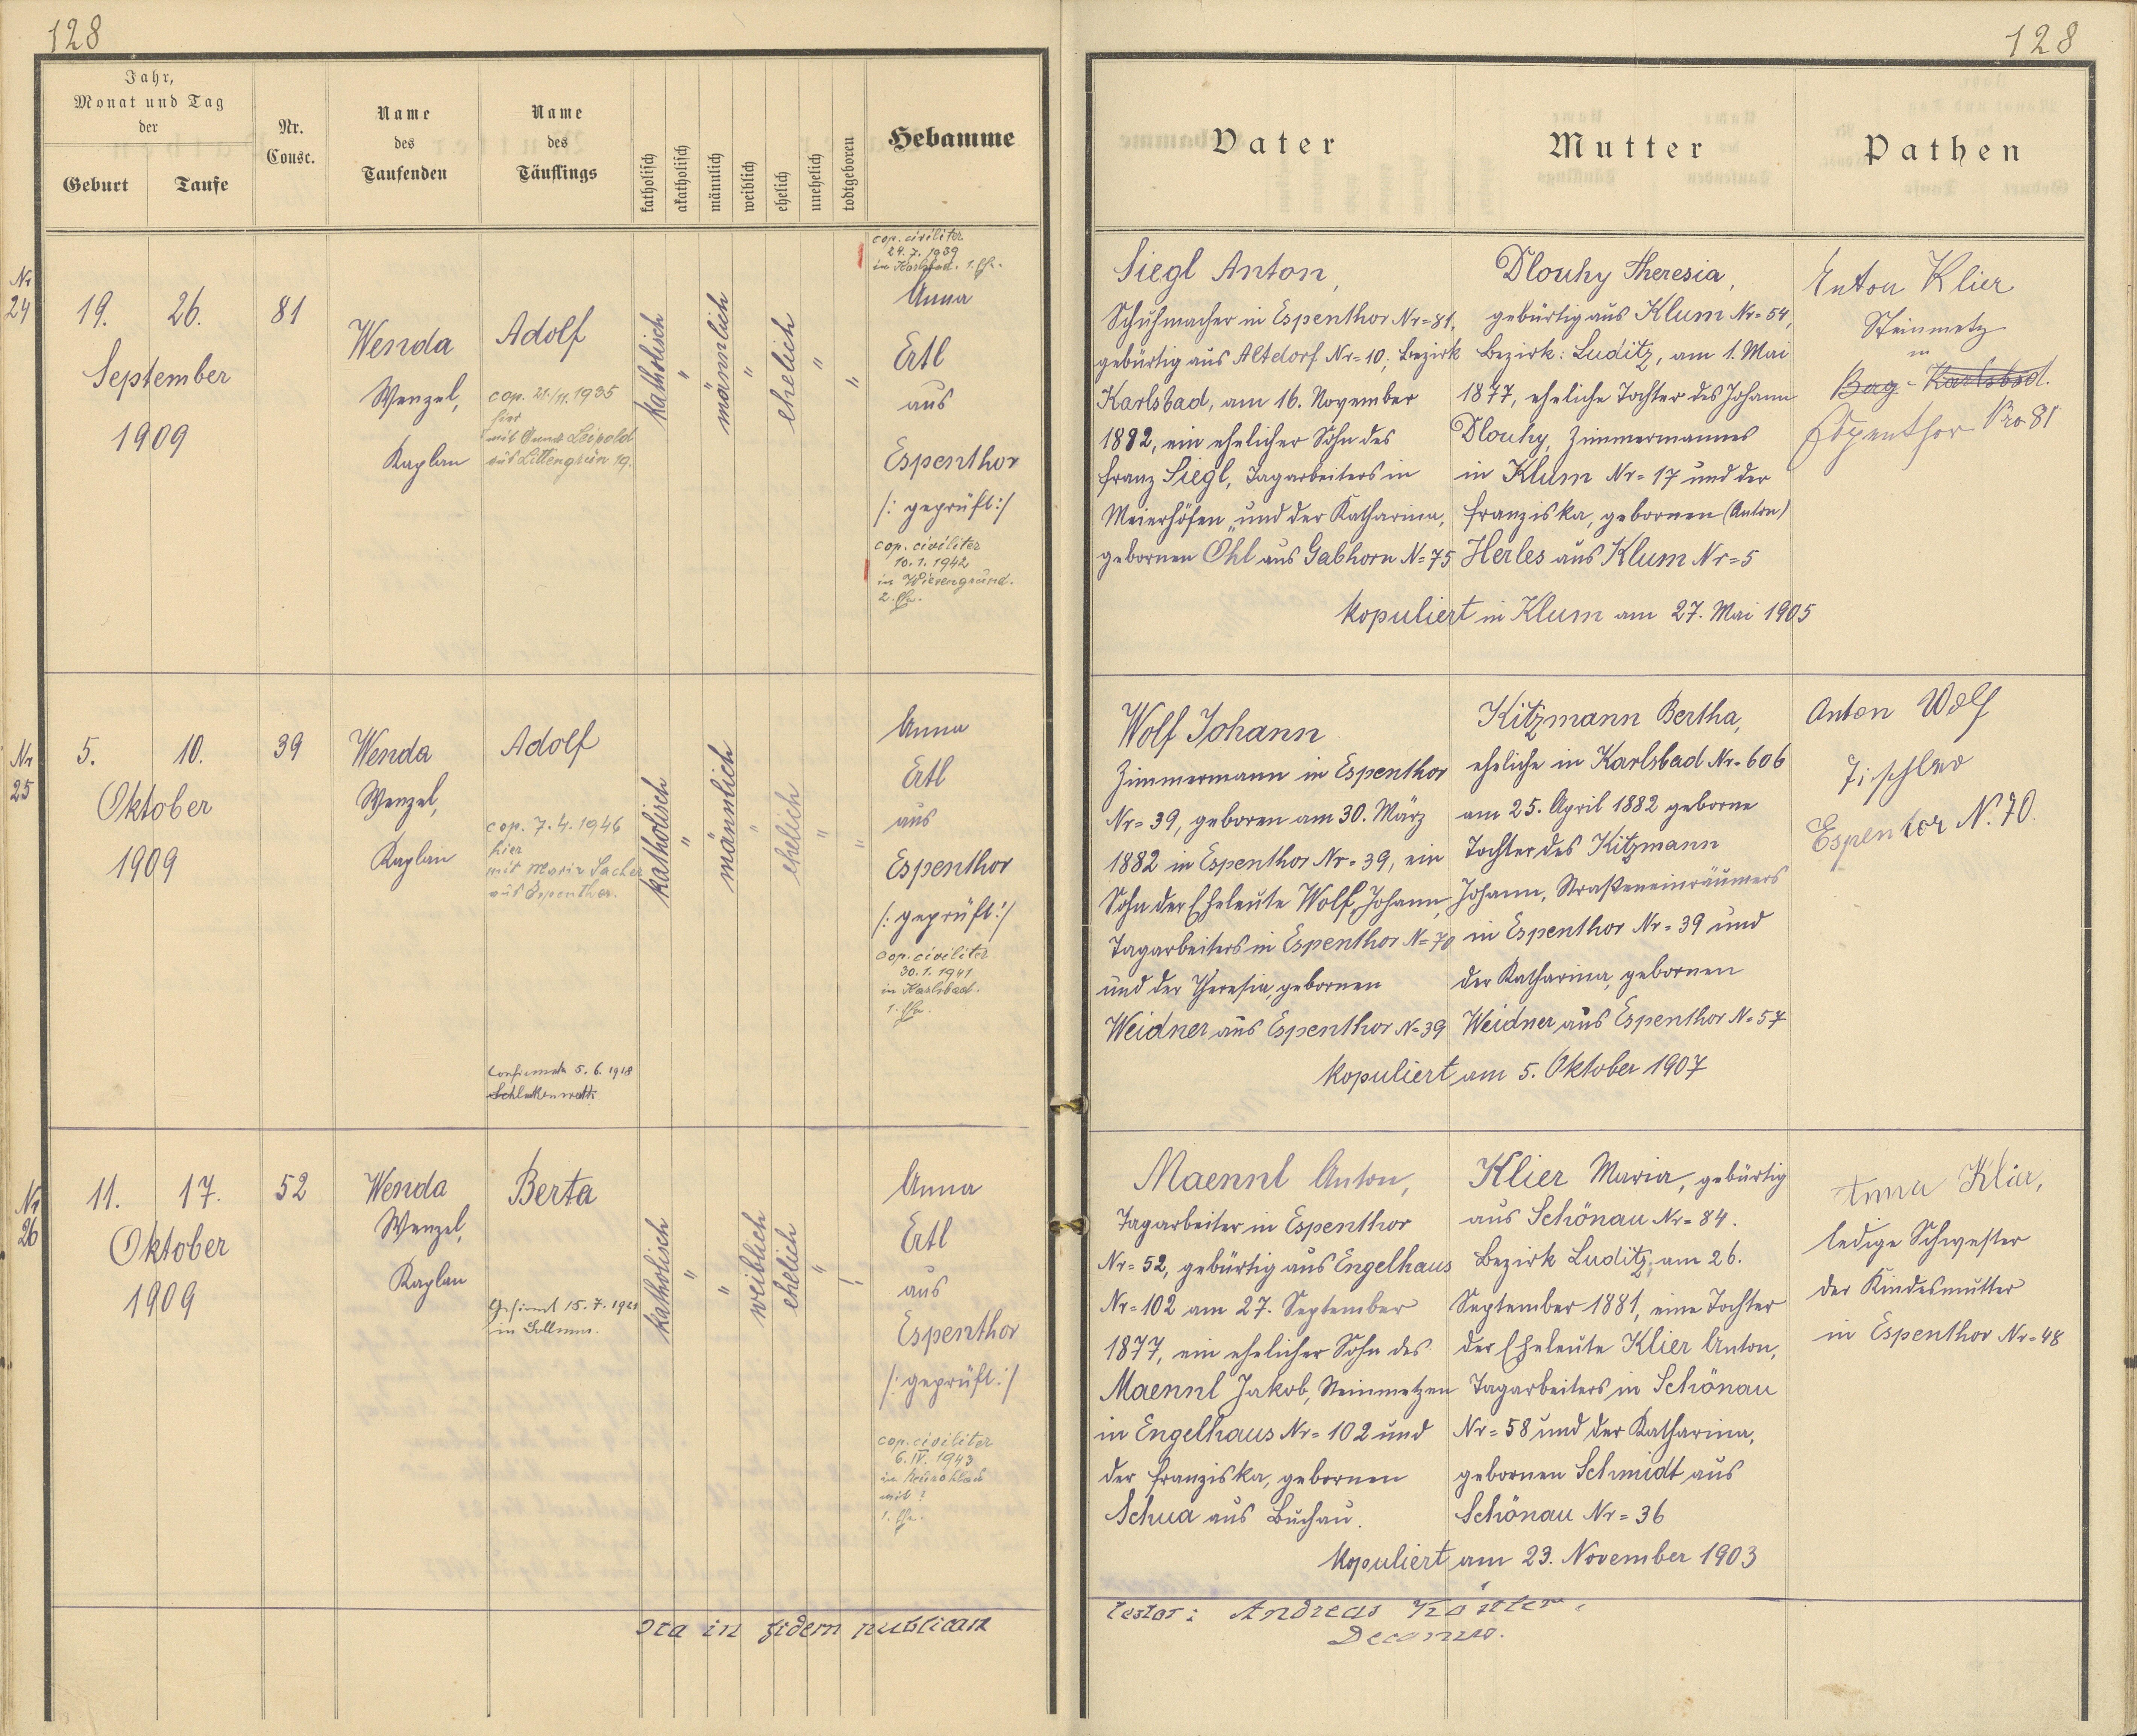 128
128
Jahr,
Monat und Tag
der
Geburt
Taufe
Nr.
Consc.
Name
des
Taufenden
Name
des
Täuflings
katholisch
akatholisch
männlich
weiblich
ehelich
unehelich
todtgeboren
Hebamme
Vater
Mutter
Pathen
Nr
24
19.
26.
September
1909
81
Wenda
Wenzel,
Kaplan
Adolf
cop. 21./11. 1935
hier
mit Anna Leipold
aus Littengrün 19.
katholisch
"
männlich
"
ehelich
"
"
cop. civiliter
24. 7. 1939
in Karlsbad. 1. Ehe.
Anna
Ertl
aus
Espenthor
/: geprüft :/
cop. civiliter
10. 1. 1942
in Wiesengrund.
2. Ehe.
Siegl Anton,
Schuhmacher in Espenthor Nr=81,
gebürtig aus Altdorf Nr=10, Bezirk
Karlsbad, am 16. November
1882, ein ehelicher Sohn des
Franz Siegl, Tagarbeiters in
Meierhöfen, und der Katharina,
gebornen Öhl aus Gabhorn N=75
Dlouhy Theresia,
gebürtig aus Klum Nr=54,
Bezirk: Luditz, am 1. Mai
1877, eheliche Tochter des Johann
Dlouhy, Zimmermannes
in Klum Nr=17 und der
Franziska, gebornen (Anton)
Herles aus Klum Nr=5
kopuliert in Klum am 27. Mai 1905
Anton Klier
Steinmetz
in
Karlsbad.
Espenthor Nro 81
Nr
25
5.
10.
Oktober
1909
39
Wenda
Wenzel,
Kaplan
Adolf
cop. 7. 4. 1946
hier
mit Maria Sacher
aus Espenthor.
Confirmatu 5. 6. 1918
Schlackenwerth.
katholisch
"
männlich
"
ehelich
"
"
Anna
Ertl
aus
Espenthor
/: geprüft :/
cop. civiliter
30. 1. 1941
in Karlsbad.
1. Ehe.
Wolf Johann
Zimmermann in Espenthor
Nr=39, geboren am 30. März
1882 in Espenthor Nr=39, ein
Sohn der Eheleute Wolf, Johann,
Tagarbeiters in Espenthor N=70
und der Theresia, gebornen
Weidner aus Espenthor N=39
Kitzmann Bertha,
eheliche in Karlsbad Nr=606
am 25. April 1882 geborne
Tochter des Kitzmann
Johann, Straßeneinräumers
in Espenthor Nr=39 und
der Katharina, gebornen
Weidner aus Espenthor N=57
kopuliert am 5. Oktober 1907
Anton Wolf
Tischler
Espentor N. 70.
Nr
26
11.
17.
Oktober
1909
52
Wenda
Wenzel,
Kaplan
Berta
Gefirmt 15. 7. 1921
in Sollmus.
katholisch
"
"
weiblich
ehelich
"
Anna
Ertl
aus
Espenthor
/: geprüft :/
cop. civiliter
6. IV. 1943
in Neurohlau
mit ?
1. Ehe.
Maennl Anton,
Tagarbeiter in Espenthor
Nr=52, gebürtig aus Engelhaus
Nr=102 am 27. September
1877, ein ehelicher Sohn des
Maennl Jakob, Steinmetzen
in Engelhaus Nr=102 und
der Franziska, gebornen
Schua aus Buchau.
Klier Maria, gebürtig
aus Schönau Nr=84.
Bezirk Luditz, am 26.
September 1881, eine Tochter
der Eheleute Klier Anton,
Tagarbeiters in Schönau
Nr=58 und der Katharina,
gebornen Schmidt aus
Schönau Nr=36
kopuliert am 23. November 1903
Anna Klier,
ledige Schwester
der Kindesmutter
in Espenthor Nr=48
Ita in fidem publicam
testor: Andreas
Decanus.